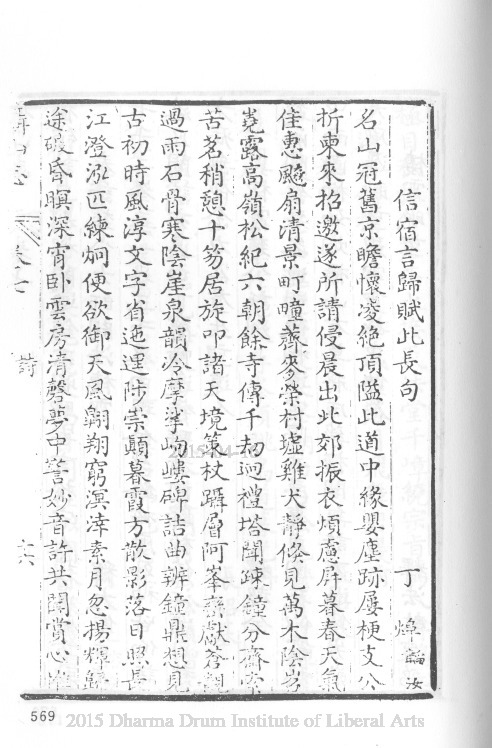 信宿言歸賦此長句　丁煒 瞻汝
名山冠舊京瞻懷凌絕頂隘此道中緣嬰塵跡屢梗支公
折柬來招邀遂所請侵晨出北郊振衣煩慮屏暮春天氣
佳惠颸扇清景町疃薺麥榮村墟雞犬靜倏見萬木陰岧
嶤露高嶺松紀六朝餘寺傳千劫迥禮塔聞疎鐘分齋
苦茗稍憩十笏居旋叩諸天境策杖躡層阿峯
過雨石骨寒陰崖泉韻冷摩挲岣嶁碑詰曲辨鐘鼎想見
古初時風淳文字省迤邐陟崇顛暮霞方散影落日照長
江澄泓匹練炯便欲御天風翱翔窮溟涬素月忽揚輝歸
途破昏瞑深宵卧雲房清磬夢中警妙音許共聞賞心
卷七
詩
六
569
2015-04-
2015 Dharma Drum Institute of Liberal Arts